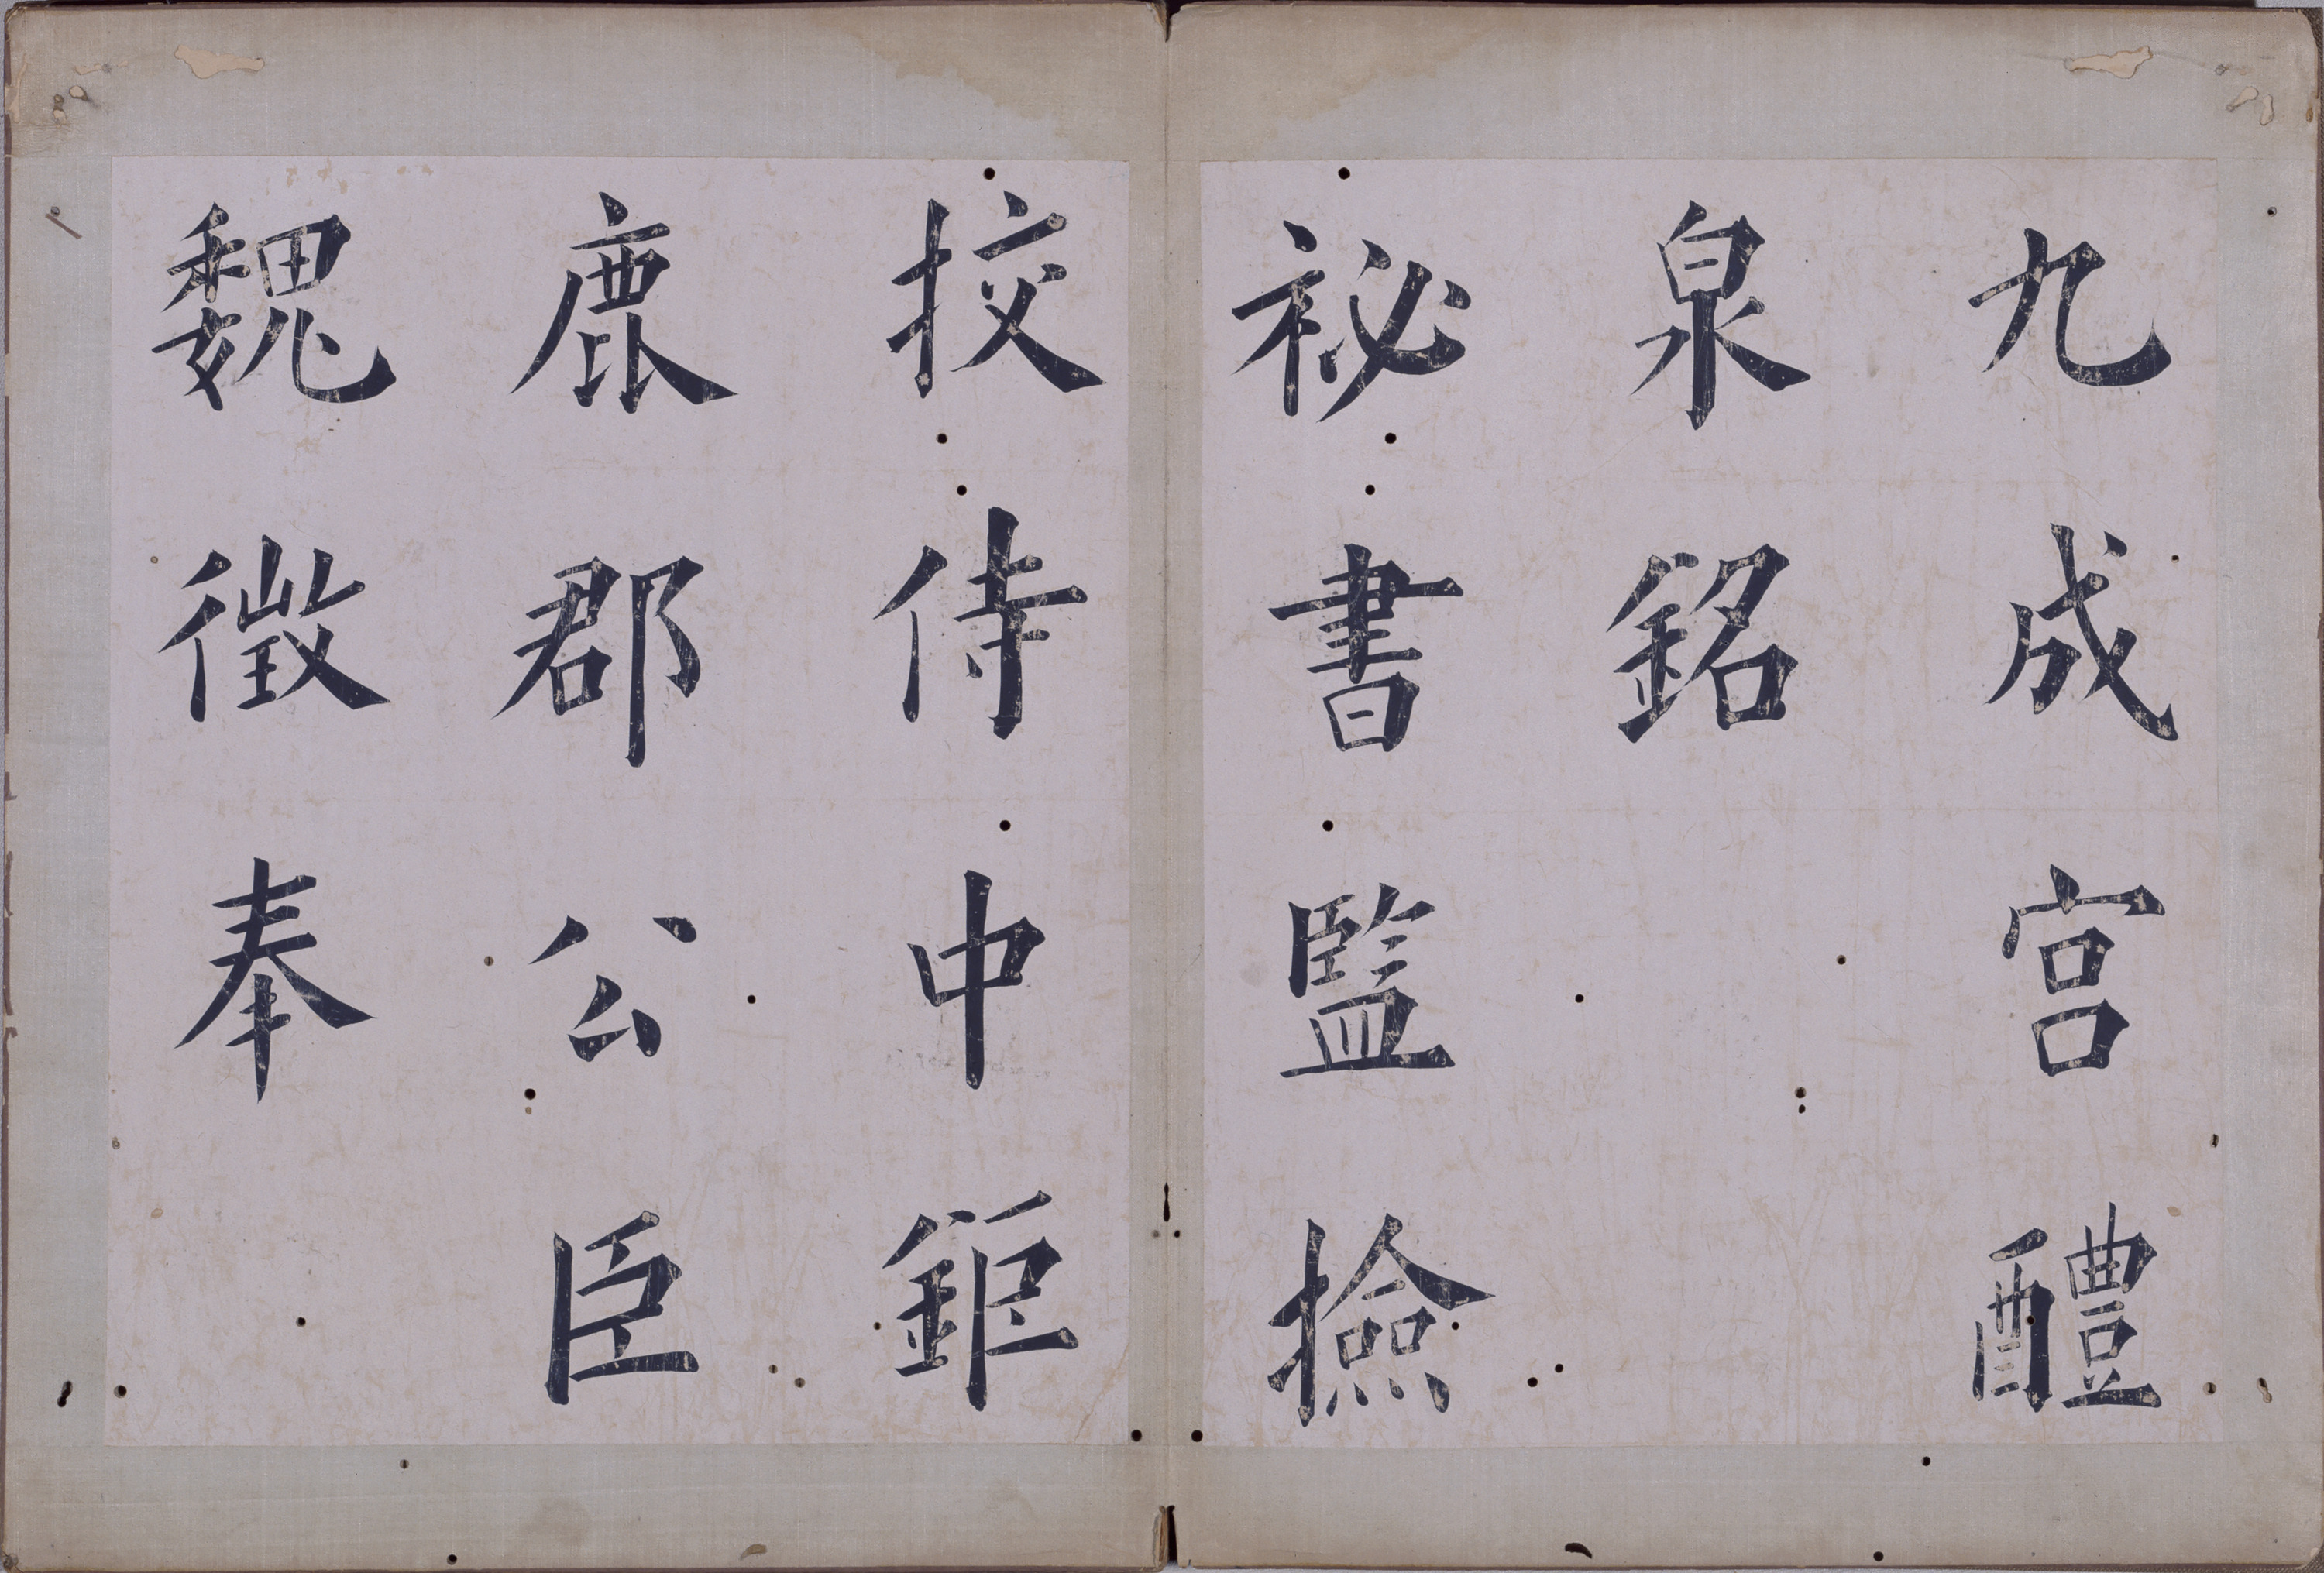 九成宮醴
泉銘
祕書監撿
挍侍中鉅
鹿郡公臣
魏徵奉